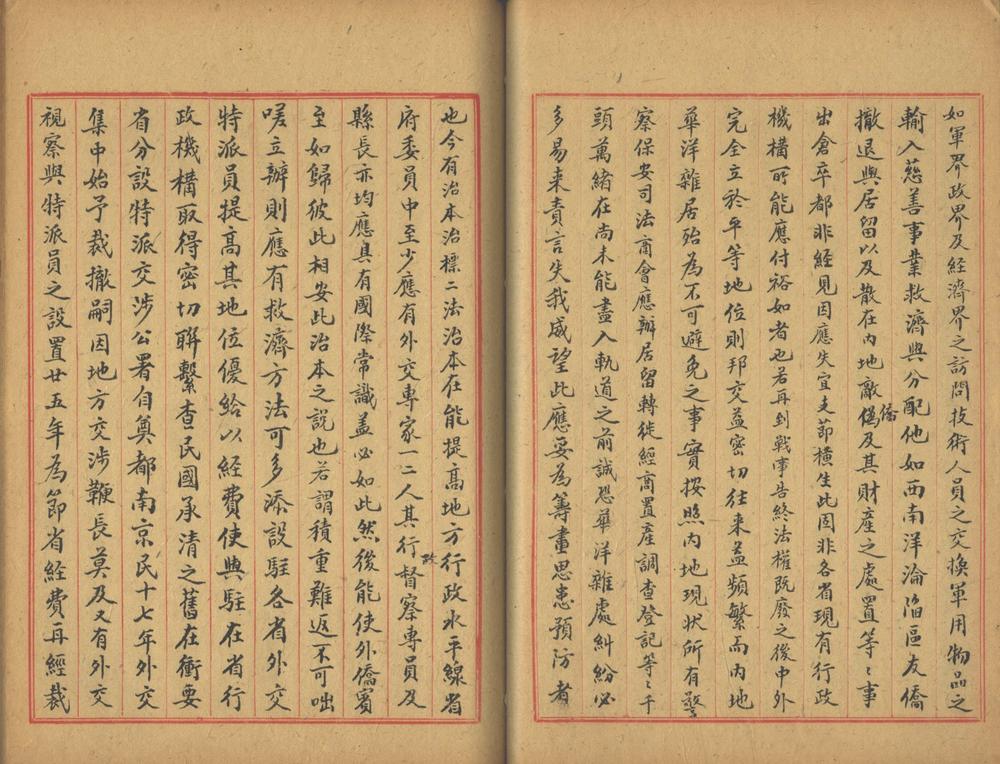 如軍界政界及経濟界之訪問技術人員之交換軍用物品之
輸入慈善事業救濟與分配他如西南洋淪陷區友僑
撤退與居留以及散在內地敵偽僑及其財產之處置等〻事
出倉卒都非経見因應失宜支節橫生此因非各省現有行政
機構所能應付裕如者也若再到戰事告終法權既廢之後中外
完全立於平等地位則邦交益密切往来益頻繁而內地
華洋雜居殆為不可避免之事實按照內地現狀所有警
察保安司法商會應辦居留轉徙經商置產調查登記等〻千
頭萬緒在尚未能盡入軌道之前誠恐華洋雜處糾紛必
多易来責言失我威望此應妥為籌畫思患預防者
也今有治本治標二法治本在能提高地方行政水平線省
府委員中至少應有外交專家一二人其行政督察專員及
縣長亦均應具有國際常識蓋必如此然後能使外僑賓
至如歸彼此相安此治本之說也若謂積重難返不可咄
嗟立辦則應有救濟方法可多添設駐各省外交
特派員提高其地位優給以經費使與駐在省行
政機構取得密切聯繫查民國承清之舊在衝要
省分設特派交涉公署自奠都南京民十七年外交
集中始予裁撤嗣因地方交涉鞭長莫及又有外交
視察與特派員之設置廿五年為節省経費再經裁